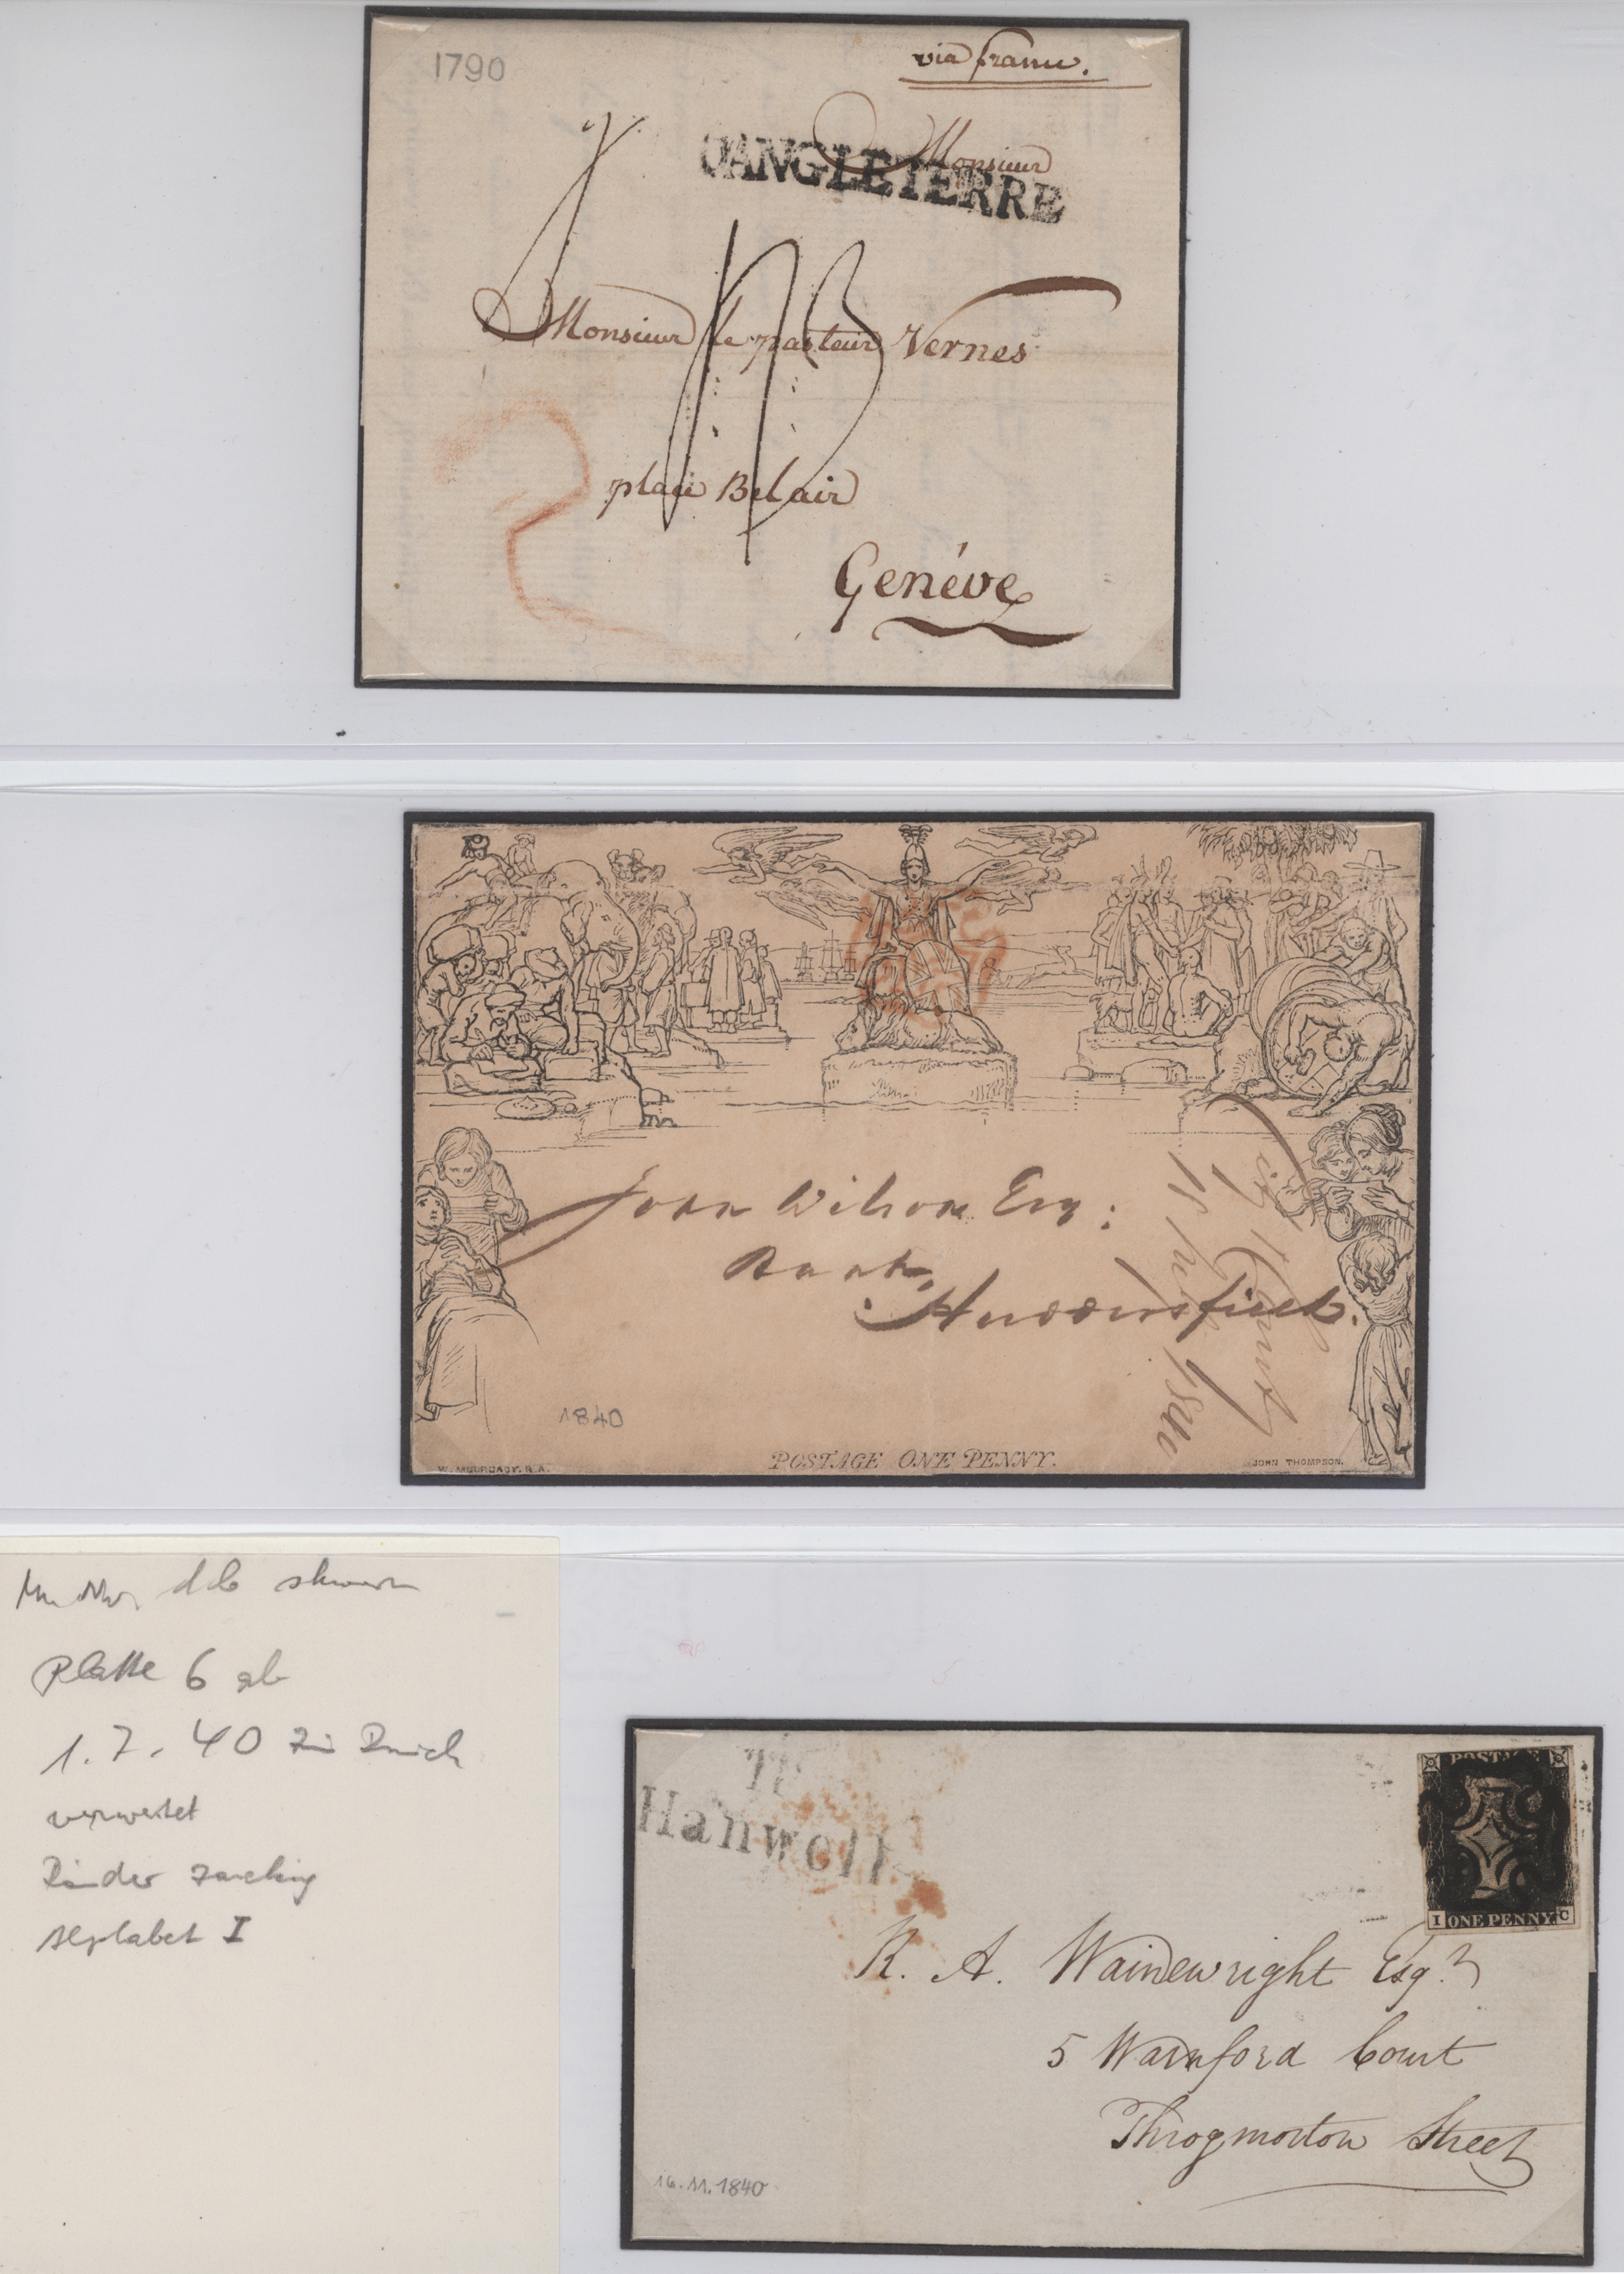 1790
via france.
D'ANGLETERRE
Monsieur
Monsieur le pasteur Vernes
place Belair
Genéve
John Wilson Esq:
Bank,
Huddersfield.
1840
POSTAGE ONE PENNY.
W. MULREADY. R.A.
JOHN THOMPSON.
Platte 6 ab
1.7.40
Ränder
Alphabet I
Hanwell
POSTAGE
I ONE PENNY. C
R. A. Wainewright Esqr
5 Warnford Court
Throgmorton Street
16.11.1840